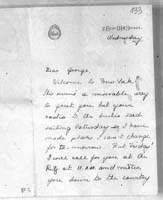 133
Wednesday
Dear George,
Welcome to New York!
This seems a miserable way
to greet you but your
radio to the Berlin said
sailing Saturday so I have
made plans I can't change
for to-morrow. But Friday
I will call for you at the
Ritz at 11 a.m. and motor
you down to the country